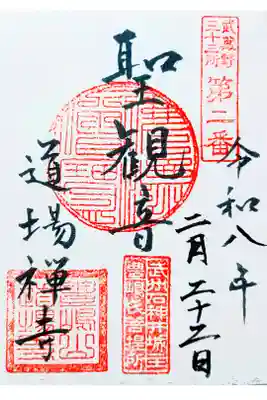 武蔵野
三十三所
第二番
令和八年
二月二十二日
聖観音
武州石神井城主
豊嶋氏菩提所
道場禅寺
豊嶋山